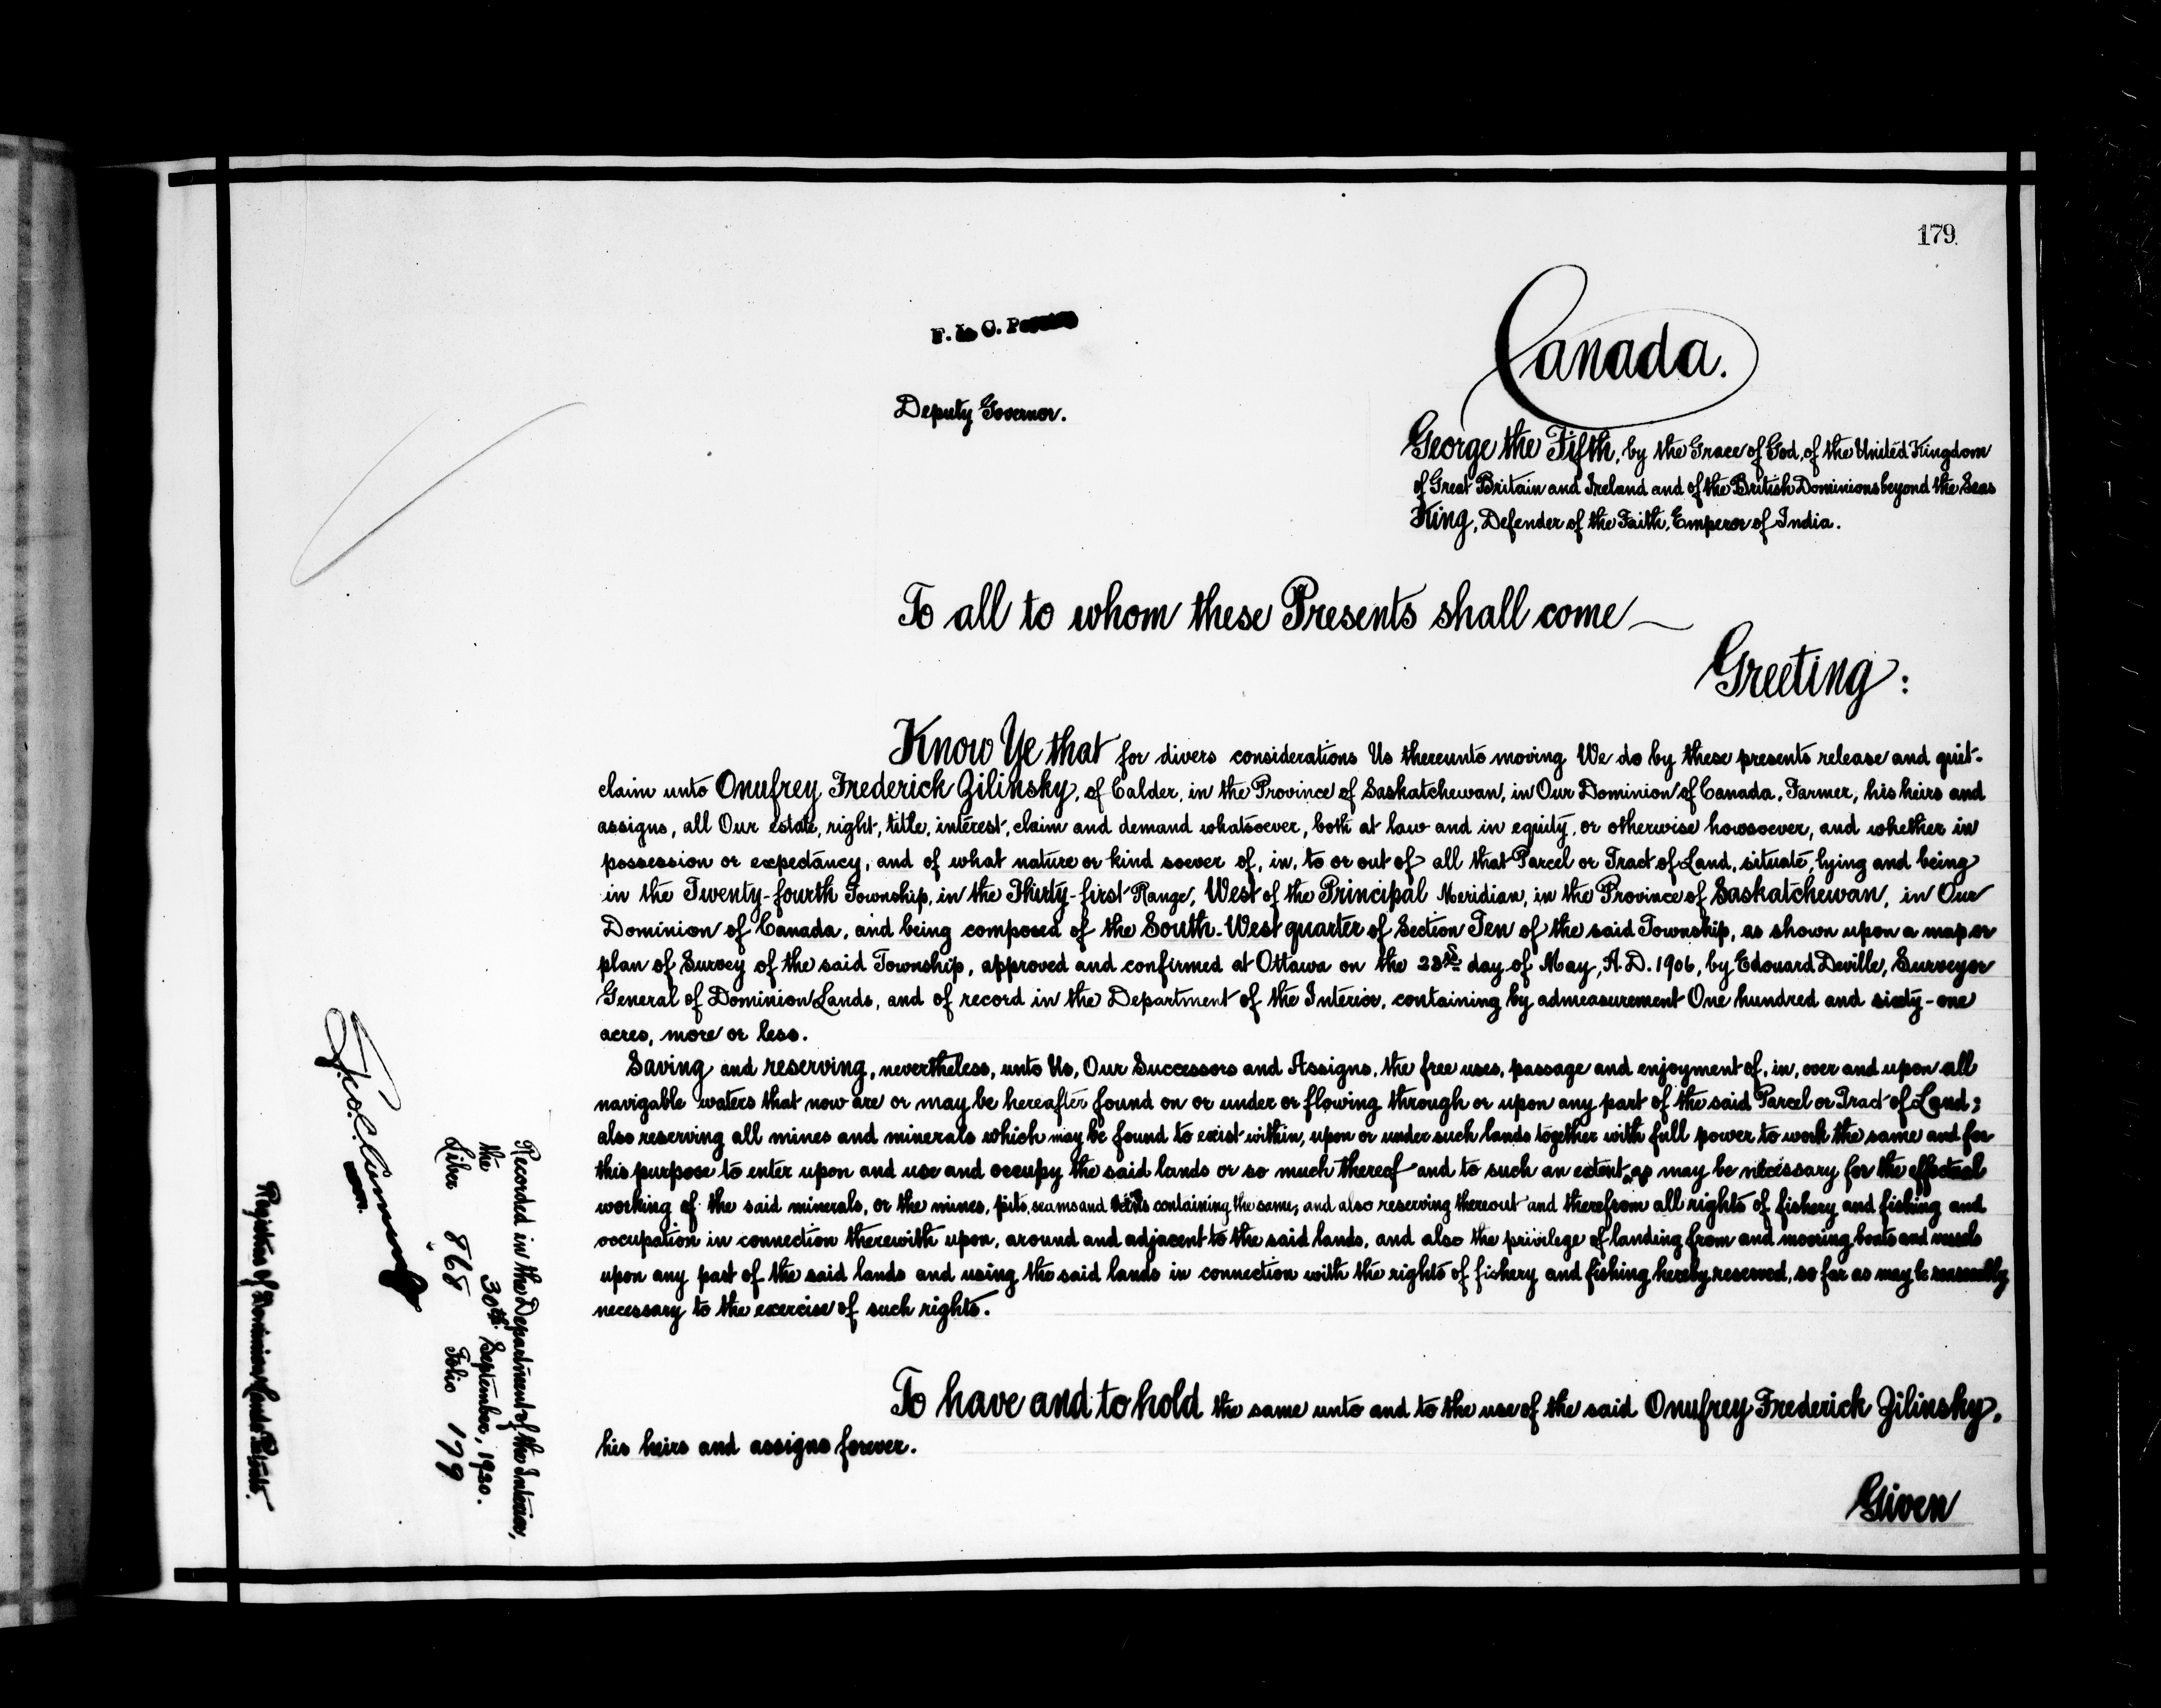 179.
F. C. C.
Deputy Governor.
Canada.
George the Fifth, by the Grace of God, of the United Kingdom
of Great Britain and Ireland and of the British Dominions beyond the Seas
King, Defender of the Faith, Emperor of India.
To all to whom these Presents shall come
Greeting:
Know Ye that for divers considerations Us thereunto moving We do by these presents release and quit-
claim unto Onufrey Frederick Zilinsky, of Calder, in the Province of Saskatchewan, in Our Dominion of Canada, Farmer, his heirs and
assigns, all Our estate, right, title, interest, claim and demand whatsoever, both at law and in equity, or otherwise howsoever, and whether in
possession or expectancy, and of what nature or kind soever of, in, to or out of all that Parcel or Tract of Land, situate, lying and being
in the Twenty-fourth Township, in the Thirty-first Range, West of the Principal Meridian, in the Province of Saskatchewan, in Our
Dominion of Canada, and being composed of the South-West quarter of Section Ten of the said Township, as shown upon a map or
plan of Survey of the said Township, approved and confirmed at Ottawa on the day of May, A.D. 1906, by Edouard Deville, Surveyor
General of Dominion Lands, and of record in the Department of the Interior, containing by admeasurement One hundred and sixty-one
acres, more or less.
Saving and reserving, nevertheless, unto Us, Our Successors and Assigns, the free uses, passage and enjoyment of, in, over and upon all
navigable waters that now are or may be hereafter found on or under or flowing through or upon any part of the said Parcel or Tract of Land;
also reserving all mines and minerals which may be found to exist within, upon or under such lands together with full power to work the same and for
this purpose to enter upon and use and occupy the said lands or so much thereof and to such an extent as may be necessary for the effectual
working of the said minerals, or the mines, pits, seams and veins containing the same; and also reserving thereout and therefrom all rights of fishery and fishing and
occupation in connection therewith upon, around and adjacent to the said lands, and also the privilege of landing from and mooring boats and vessels
upon any part of the said lands and using the said lands in connection with the rights of fishery and fishing hereby reserved, so far as may be reasonably
necessary to the exercise of such rights.
To have and to hold the same unto and to the use of the said Onufrey Frederick Zilinsky,
his heirs and assigns forever.
Given
Recorded in the Department of the Interior,
the 30th September, 1920.
Liber 868 Folio 179
Registrar of Dominion Lands Patents.